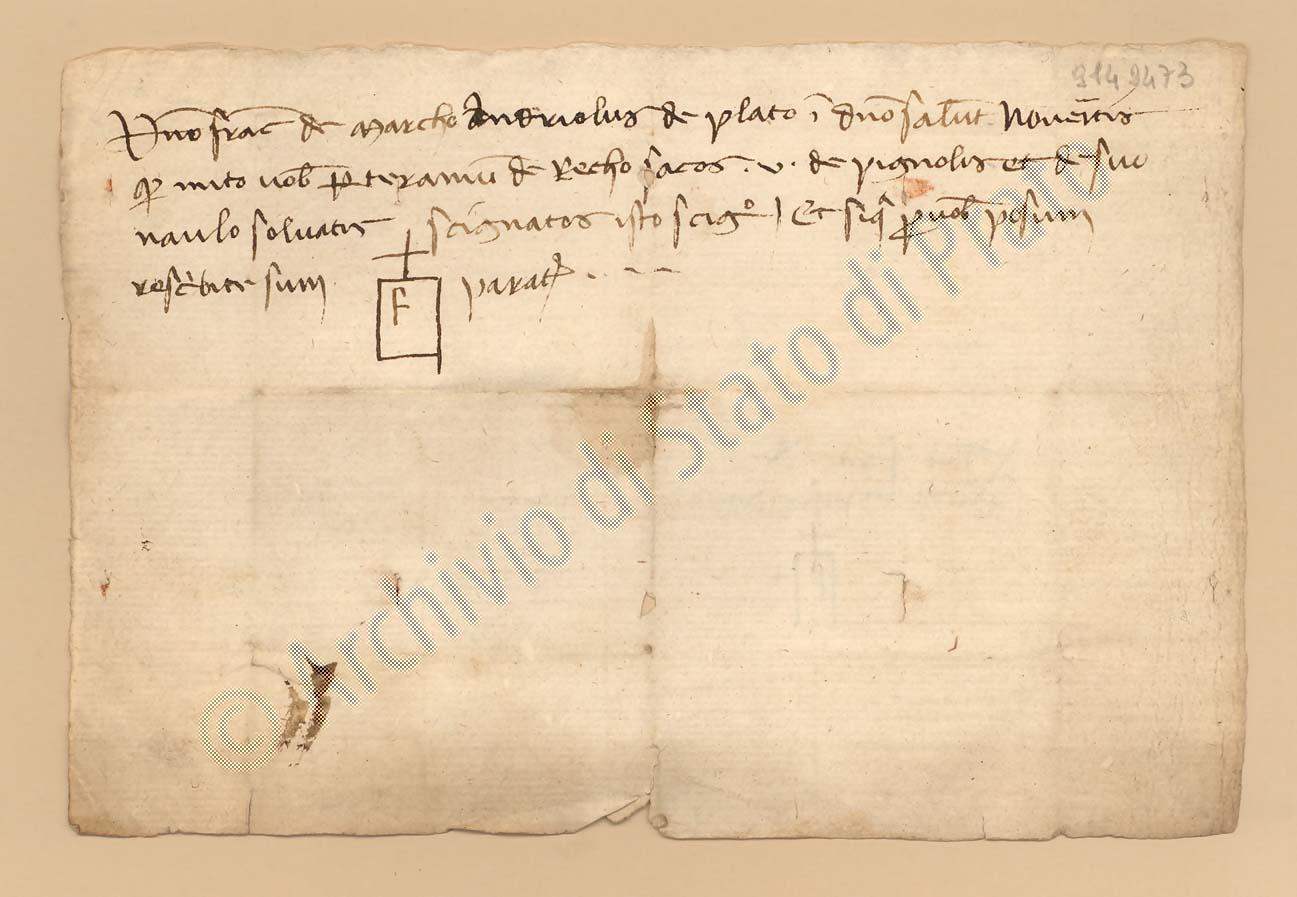 9142473
Dno franc de Marcho Andriolus de plato i dno salut Noveritis
q mito vob p teramu de Recho sacos . v . de pignolis et de suo
naulo solvatis scignatos isto scigo Et siq p vob posum
rescbite sum parat
F
© Archivio di Stato di Prato